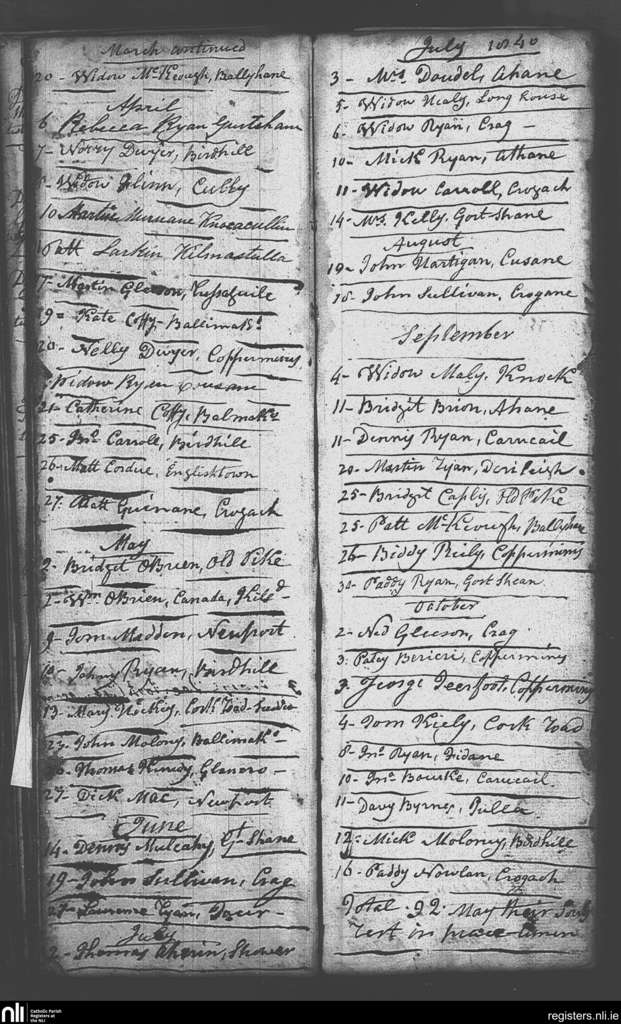 March continued
20 - Widow McKeough, Ballyhane
April
6 Rebecca Ryan Gurtshane
7 - Winy Dwyer, Birdhill
8 - Widow Glinn, Cubby
10 Martin Murnane Knocacullin
Patt Larkin Kilmastulla
17 - Martin Gleeson,
19 = Kate Coffy Ballimaks
20 - Nelly Dwyer, Coppermines
Widow Ryan Cusane
21 - Catherine Coffy, Balmaks
25 - Jno Carroll, Birdhill
26 - Matt Cordue, Englishtown
27. Matt Guinane, Crogach
May
2 - Bridget OBrien, Old Pike
2 - Wm OBrien, Canada, Kild -
9 - Tom Madden, Newport
10 - Johny Ryan, Birdhill
13 - Mary Hickey, Cork Road
23 - John Molony Ballimaks -
Thomas Kennedy, Glanero -
27 - Dick Mac, Newport
June
14 - Dennis Mulcahy, Gt Shane
19 - John Sullivan, Crag
27 - Laurence Ryan,
July
2 - Thomas Aherin, Shower
July 1840
3 - Mrs Doudel, Ahane
5 - Widow Healy, Long house
6 - Widow Ryan, Crag -
10 - Mick Ryan, Athane
11 - Widow Carroll, Crogach
14 - Mrs Kelly, Gort Shane
August
19 - John Hartigan, Cusane
18 - John Sullivan, Crogane
September
4 - Widow Maly, Knock
11 - Bridgit Brion, Ahane
11 - Dennis Ryan, Carucail
20 - Martin Ryan, Derileigh
25 - Bridgit Caply, Old Pike
25 - Patt McKeough, Ballyhane
26 - Biddy Reily, Coppermines
30 - Paddy Ryan, Gort Shean
October
2 - Ned Gleeson, Crag
3. Patsy Berieri, Coppermines
3. George Deerfoot, Coppermines
4 - Tom Kiely, Cork Road
8 - Jno Ryan, Fidane
10 - Jno Bourke, Carucail
11 - Davy Byrnes, Tulla
12 = Mick Molony, Birdhill
16 - Paddy Nowlan, Crogach
Total 92 May their Souls
rest in peace Amen
nli
Catholic Parish
Registers at
the NLI
registers.nli.ie